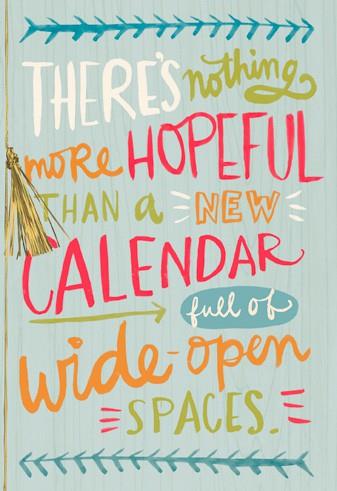 THERE'S nothing
more HOPEFUL
THAN a NEW
CALENDAR
full of
wide-open
SPACES.